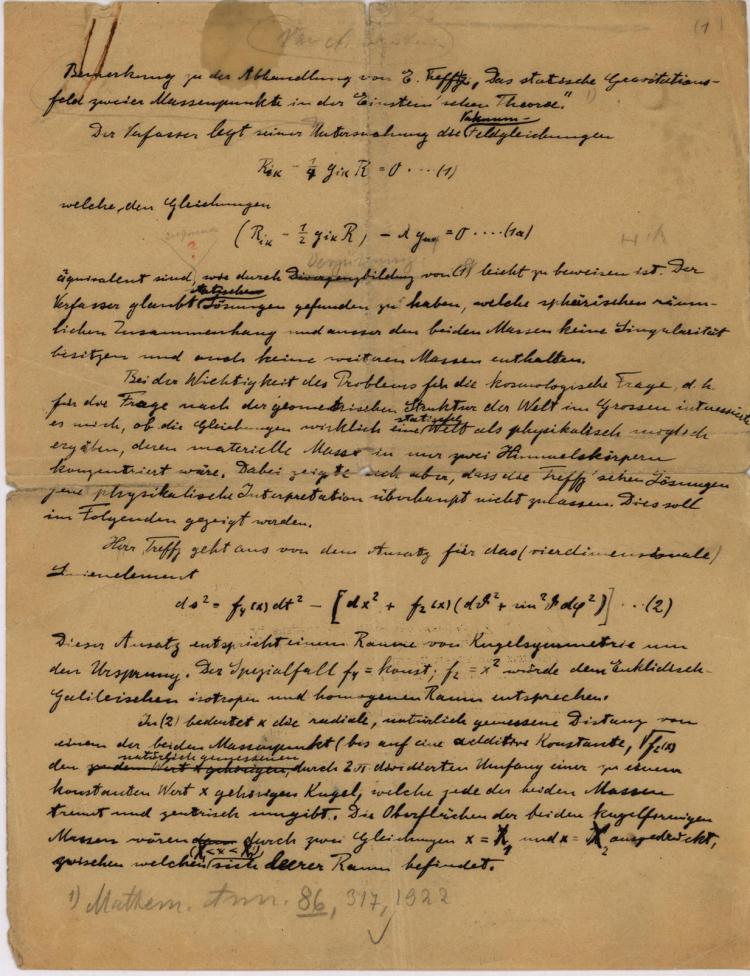 (1)
Von A. Einstein
Bemerkung zu der Abhandlung von E. Trefftz, „Das statische Gravitations-
feld zweier Massenpunkte in der Einstein'schen Theorie." 1)
Der Verfasser legt seiner Untersuchung die Vakuum-Feldgleichungen
Rik - 1/4 gik R = 0 ... (1)
welche den Gleichungen
(Rik - 1/2 gik R) - λ gik = 0 .... (1a)
?
Verjüngung
äquivalent sind, wie durch Divergenzbildung von (1) leicht zu beweisen ist. Der
Verfasser glaubt statische Lösungen gefunden zu haben, welche sphärischen räum-
lichen Zusammenhang und ausser den beiden Massen keine Singularität
besitzen und auch keine weiteren Massen enthalten.
Bei der Wichtigkeit des Problems für die kosmologische Frage, d. h.
für die Frage nach der geometrischen Struktur der Welt im Grossen interessierte
es mich, ob die Gleichungen wirklich eine statische Welt als physikalisch möglich
ergäben, deren materielle Masse in nur zwei Himmelskörpern
konzentriert wäre. Dabei zeigte sich aber, dass die Trefftz'schen Lösungen
jene physikalische Interpretation überhaupt nicht zulassen. Dies soll
im Folgenden gezeigt werden.
Herr Trefftz geht aus von dem Ansatz für das (vierdimensionale)
Linienelement
ds² = f4(x) dt² - [dx² + f2(x)(dϑ² + sin²ϑ dφ²)] ... (2)
Dieser Ansatz entspricht einem Raume von Kugelsymmetrie um
den Ursprung. Der Spezialfall f4 = konst; f2 = x² würde dem Euklidisch-
Galileischen isotropen und homogenen Raum entsprechen.
In (2) bedeutet x die radiale, natürlich gemessene Distanz von
einem der beiden Massenpunkt (bis auf eine additive Konstante, √f2(x)
den zu dem Wert x gehörigen, natürlich gemessenen durch 2π dividierten Umfang einer zu einem
konstanten Wert x gehörigen Kugel, welche jede der beiden Massen
trennt und zentrisch umgibt. Die Oberflächen der beiden kugelförmigen
Massen wären durch zwei Gleichungen x = X1 und x = X2 ausgedrückt,
zwischen welchen (X1 < x < X2) sich leerer Raum befindet.
1) Mathem. Ann. 86, 317, 1922